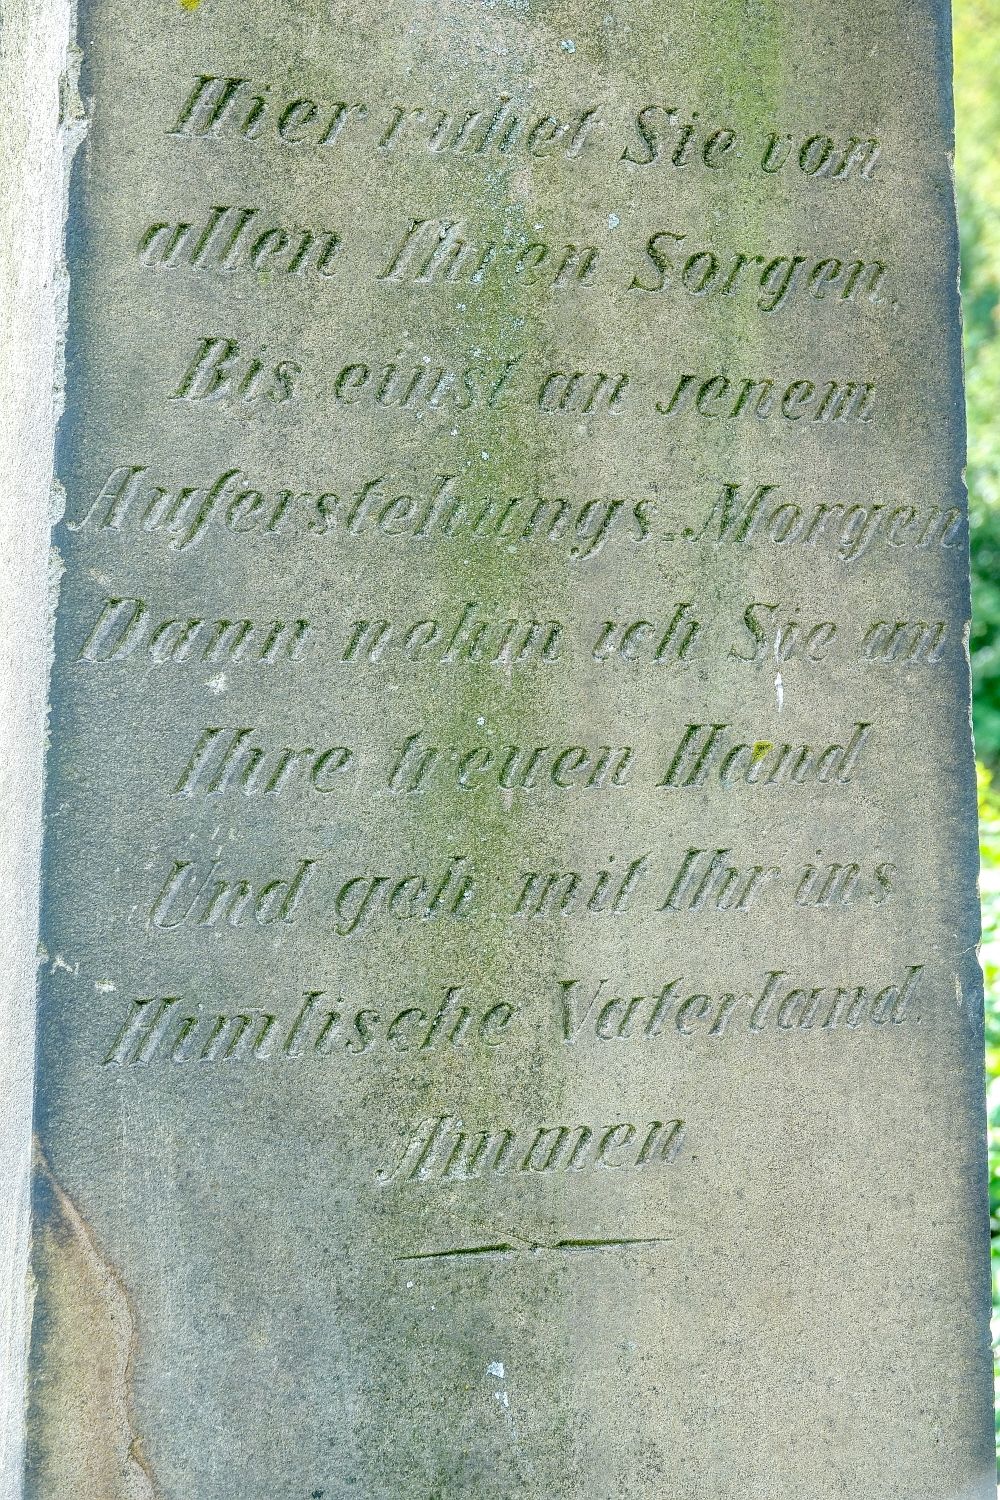 Hier ruhet Sie von
allen Ihren Sorgen,
Bis einst an jenem
Auferstehungs=Morgen.
Dann nehm ich Sie an
Ihre treuen Hand
Und geh mit Ihr ins
Himlische Vaterland.
Ammen.